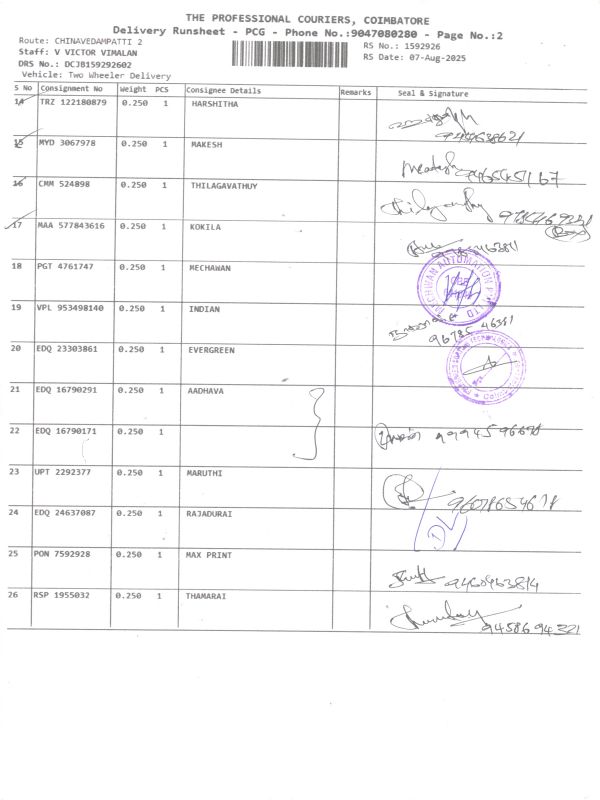 THE PROFESSIONAL COURIERS, COIMBATORE
Delivery Runsheet - PCG - Phone No.:9047080280 - Page No.:2
Route: CHINAVEDAMPATTI 2
RS No.: 1592926
Staff: V VICTOR VIMALAN
RS Date: 07-Aug-2025
DRS No.: DCJB159292602
Vehicle: Two Wheeler Delivery
S No Consignment No Weight PCS Consignee Details Remarks Seal & Signature
14 TRZ 122180879 0.250 1 HARSHITHA
15 MYD 3067978 0.250 1 MAKESH
16 CMM 524898 0.250 1 THILAGAVATHUY
17 MAA 577843616 0.250 1 KOKILA
18 PGT 4761747 0.250 1 MECHAWAN
19 VPL 953498140 0.250 1 INDIAN
20 EDQ 23303861 0.250 1 EVERGREEN
21 EDQ 16790291 0.250 1 AADHAVA
22 EDQ 16790171 0.250 1
23 UPT 2292377 0.250 1 MARUTHI
24 EDQ 24637087 0.250 1 RAJADURAI
DL
25 PON 7592928 0.250 1 MAX PRINT
9460963814
26 RSP 1955032 0.250 1 THAMARAI
9458694321